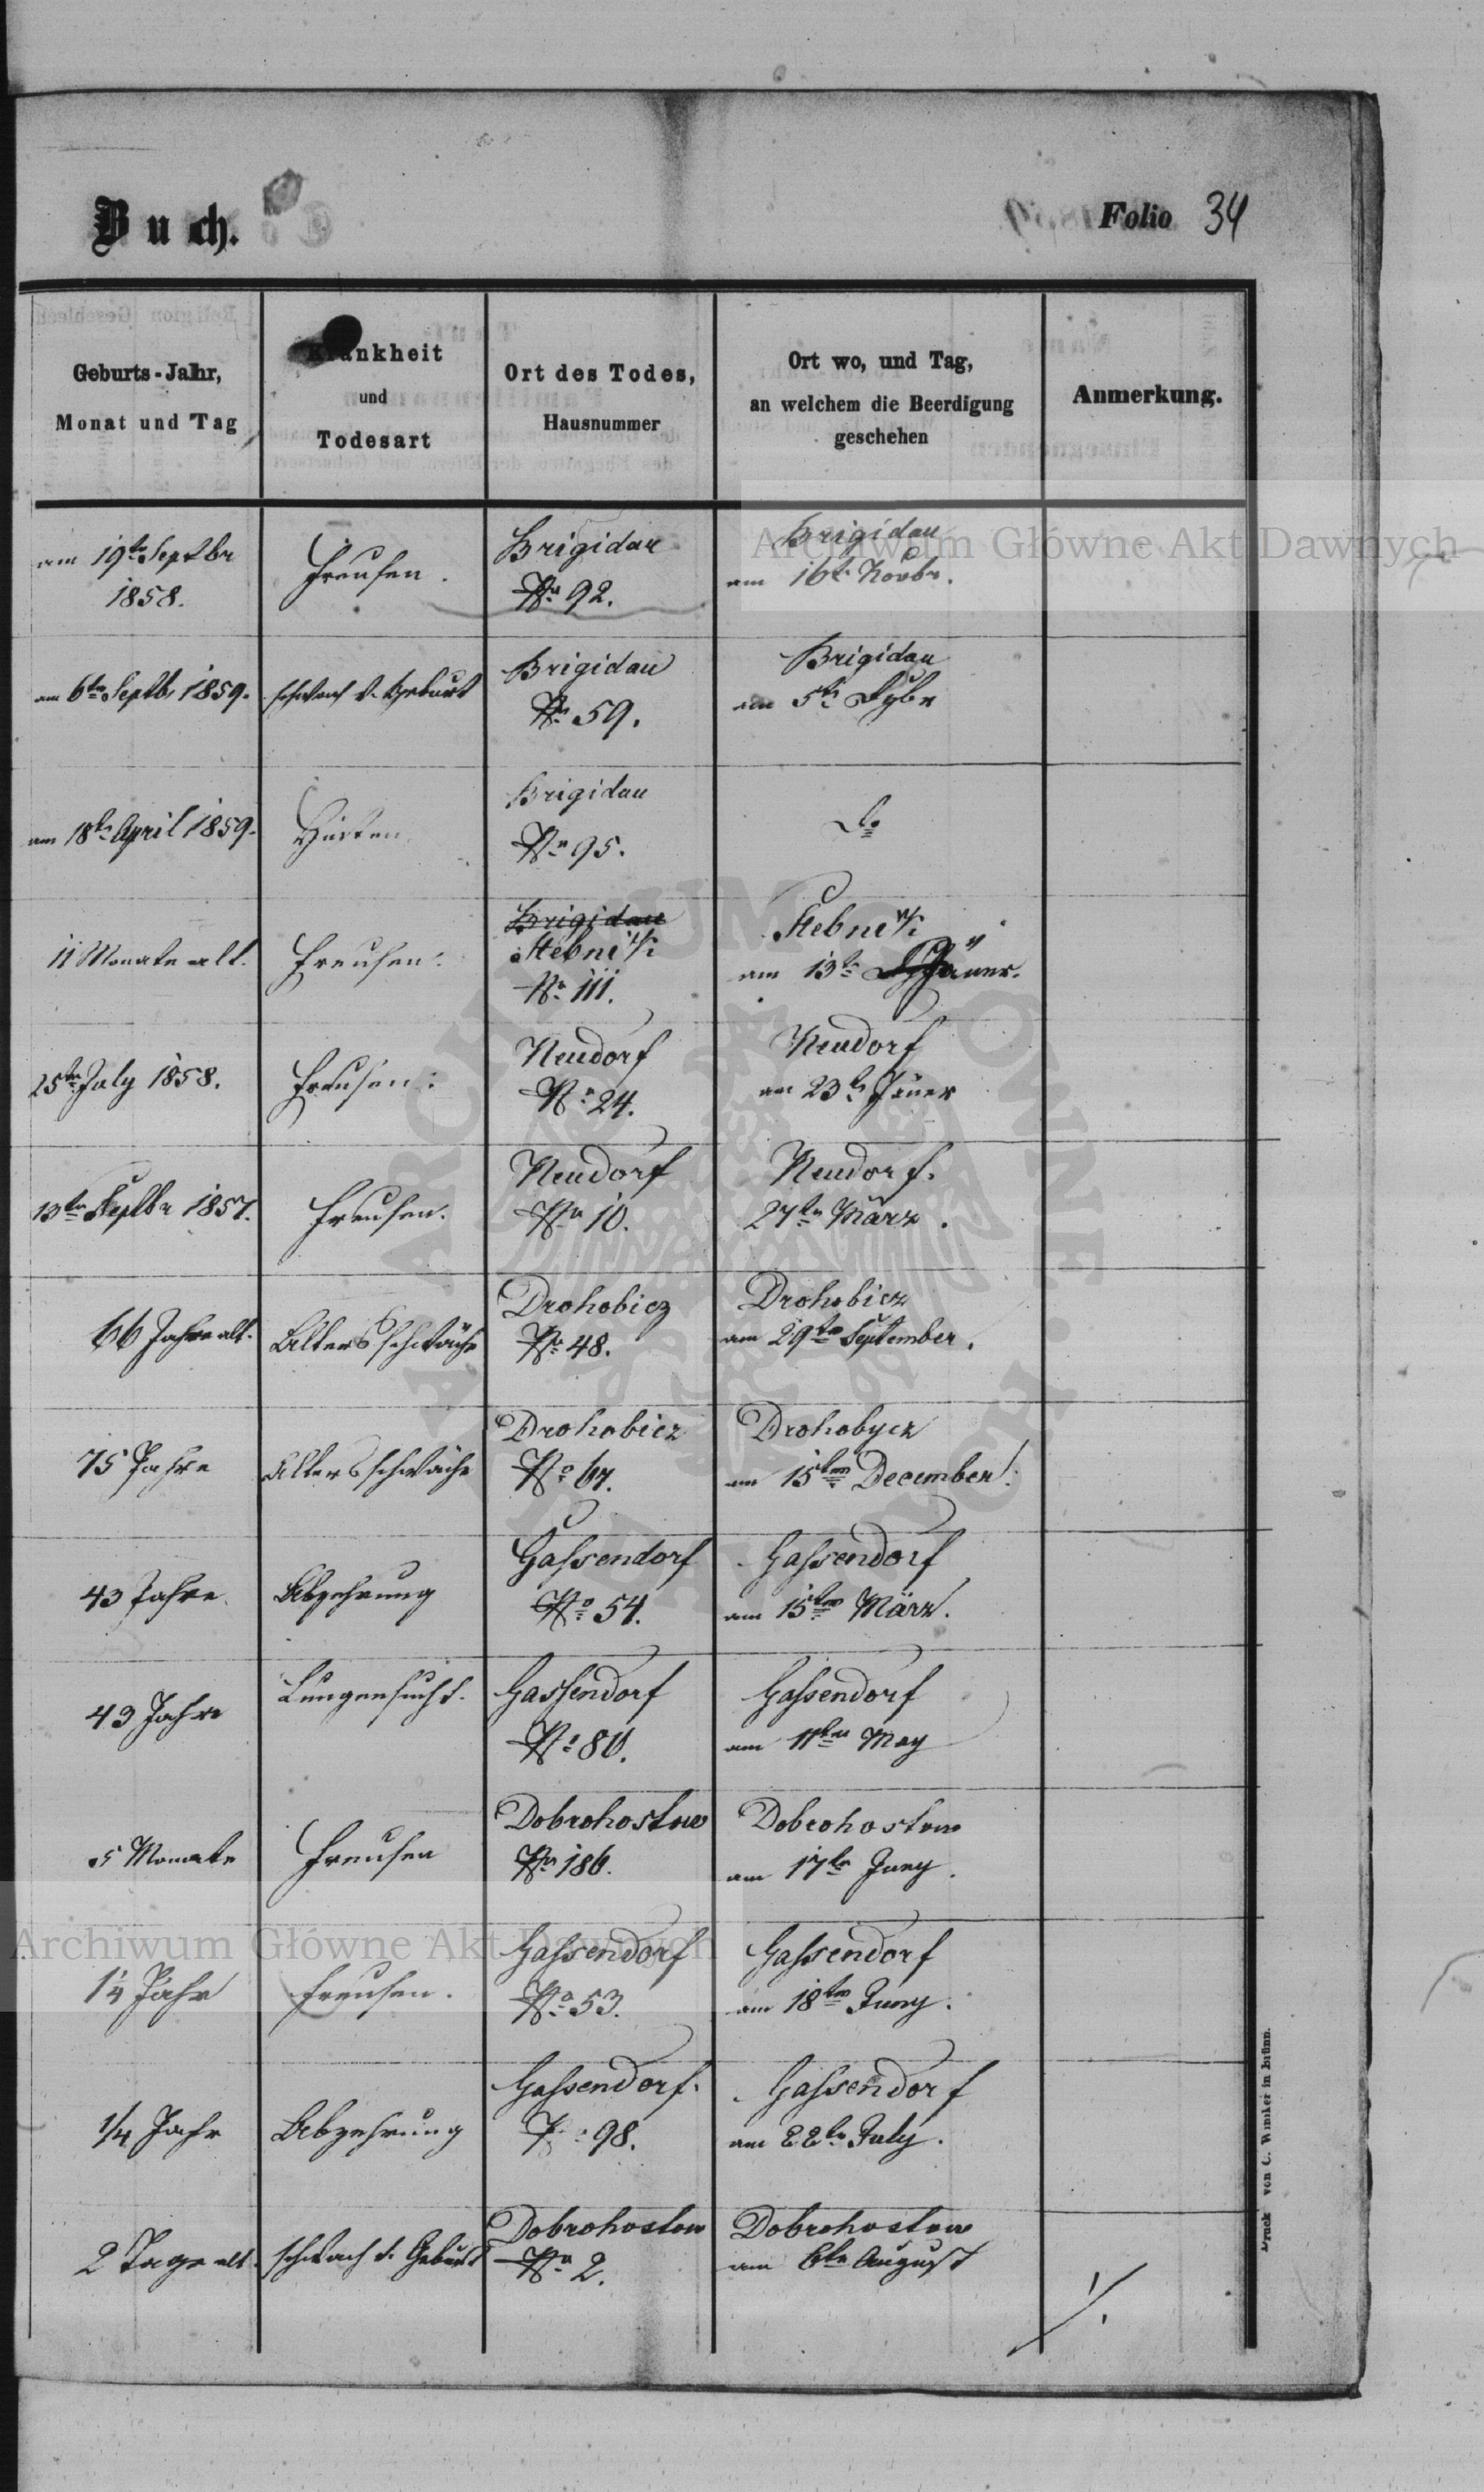 Buch.
Folio 34
Geburts-Jahr,
Monat und Tag
Krankheit
und
Todesart
Ort des Todes,
Hausnummer
Ort wo, und Tag,
an welchem die Beerdigung
geschehen
Anmerkung.
am 19te Septbr
1858.
Freusen.
Brigidau
No 92.
Brigidau
am 16te Novbr.
am 6ten Septb. 1859.
schwach v. Geburt
Brigidau
No 59.
Brigidau
am 5te
am 18te April 1859.
Husten
Brigidau
No 95.
do
11 Monate alt.
Freusen.
Brigidau
No 111.
am 13te Jäner.
25te July 1858.
Freusen.
Neudorf
No 24.
Neudorf
am 23te Jäner
13ten Septbr 1857.
Freusen.
Neudorf
No 10.
Neudorf.
27ten März.
66 Jahre alt.
Altersschwäche
Drohobicz
No 48.
Drohobicz
am 29ten September.
75 Jahre
Altersschwäche
Drohobicz
No 67.
Drohobycz
am 15ten December.
43 Jahre.
Abzehrung
Gassendorf
No 54.
Gassendorf
am 15ten März.
43 Jahre
Lungensucht.
Gassendorf
No 80.
Gassendorf
am 11ten May
5 Monate
Freusen
Dobrohostow
No 186.
Dobrohostow
am 17te Juny.
1/4 Jahr
Freusen.
Gassendorf
No 53.
Gassendorf
am 18ten Juny.
1/4 Jahr
Abzehrung
Gassendorf.
98.
Gassendorf
am 22te July.
2 Tage alt.
schwach v. Geburt
Dobrohostow
No 2.
Dobrohostow
am 6te August
Druck von C. Winiker in Brünn.
Archiwum Główne Akt Dawnych
Archiwum Główne Akt Dawnych